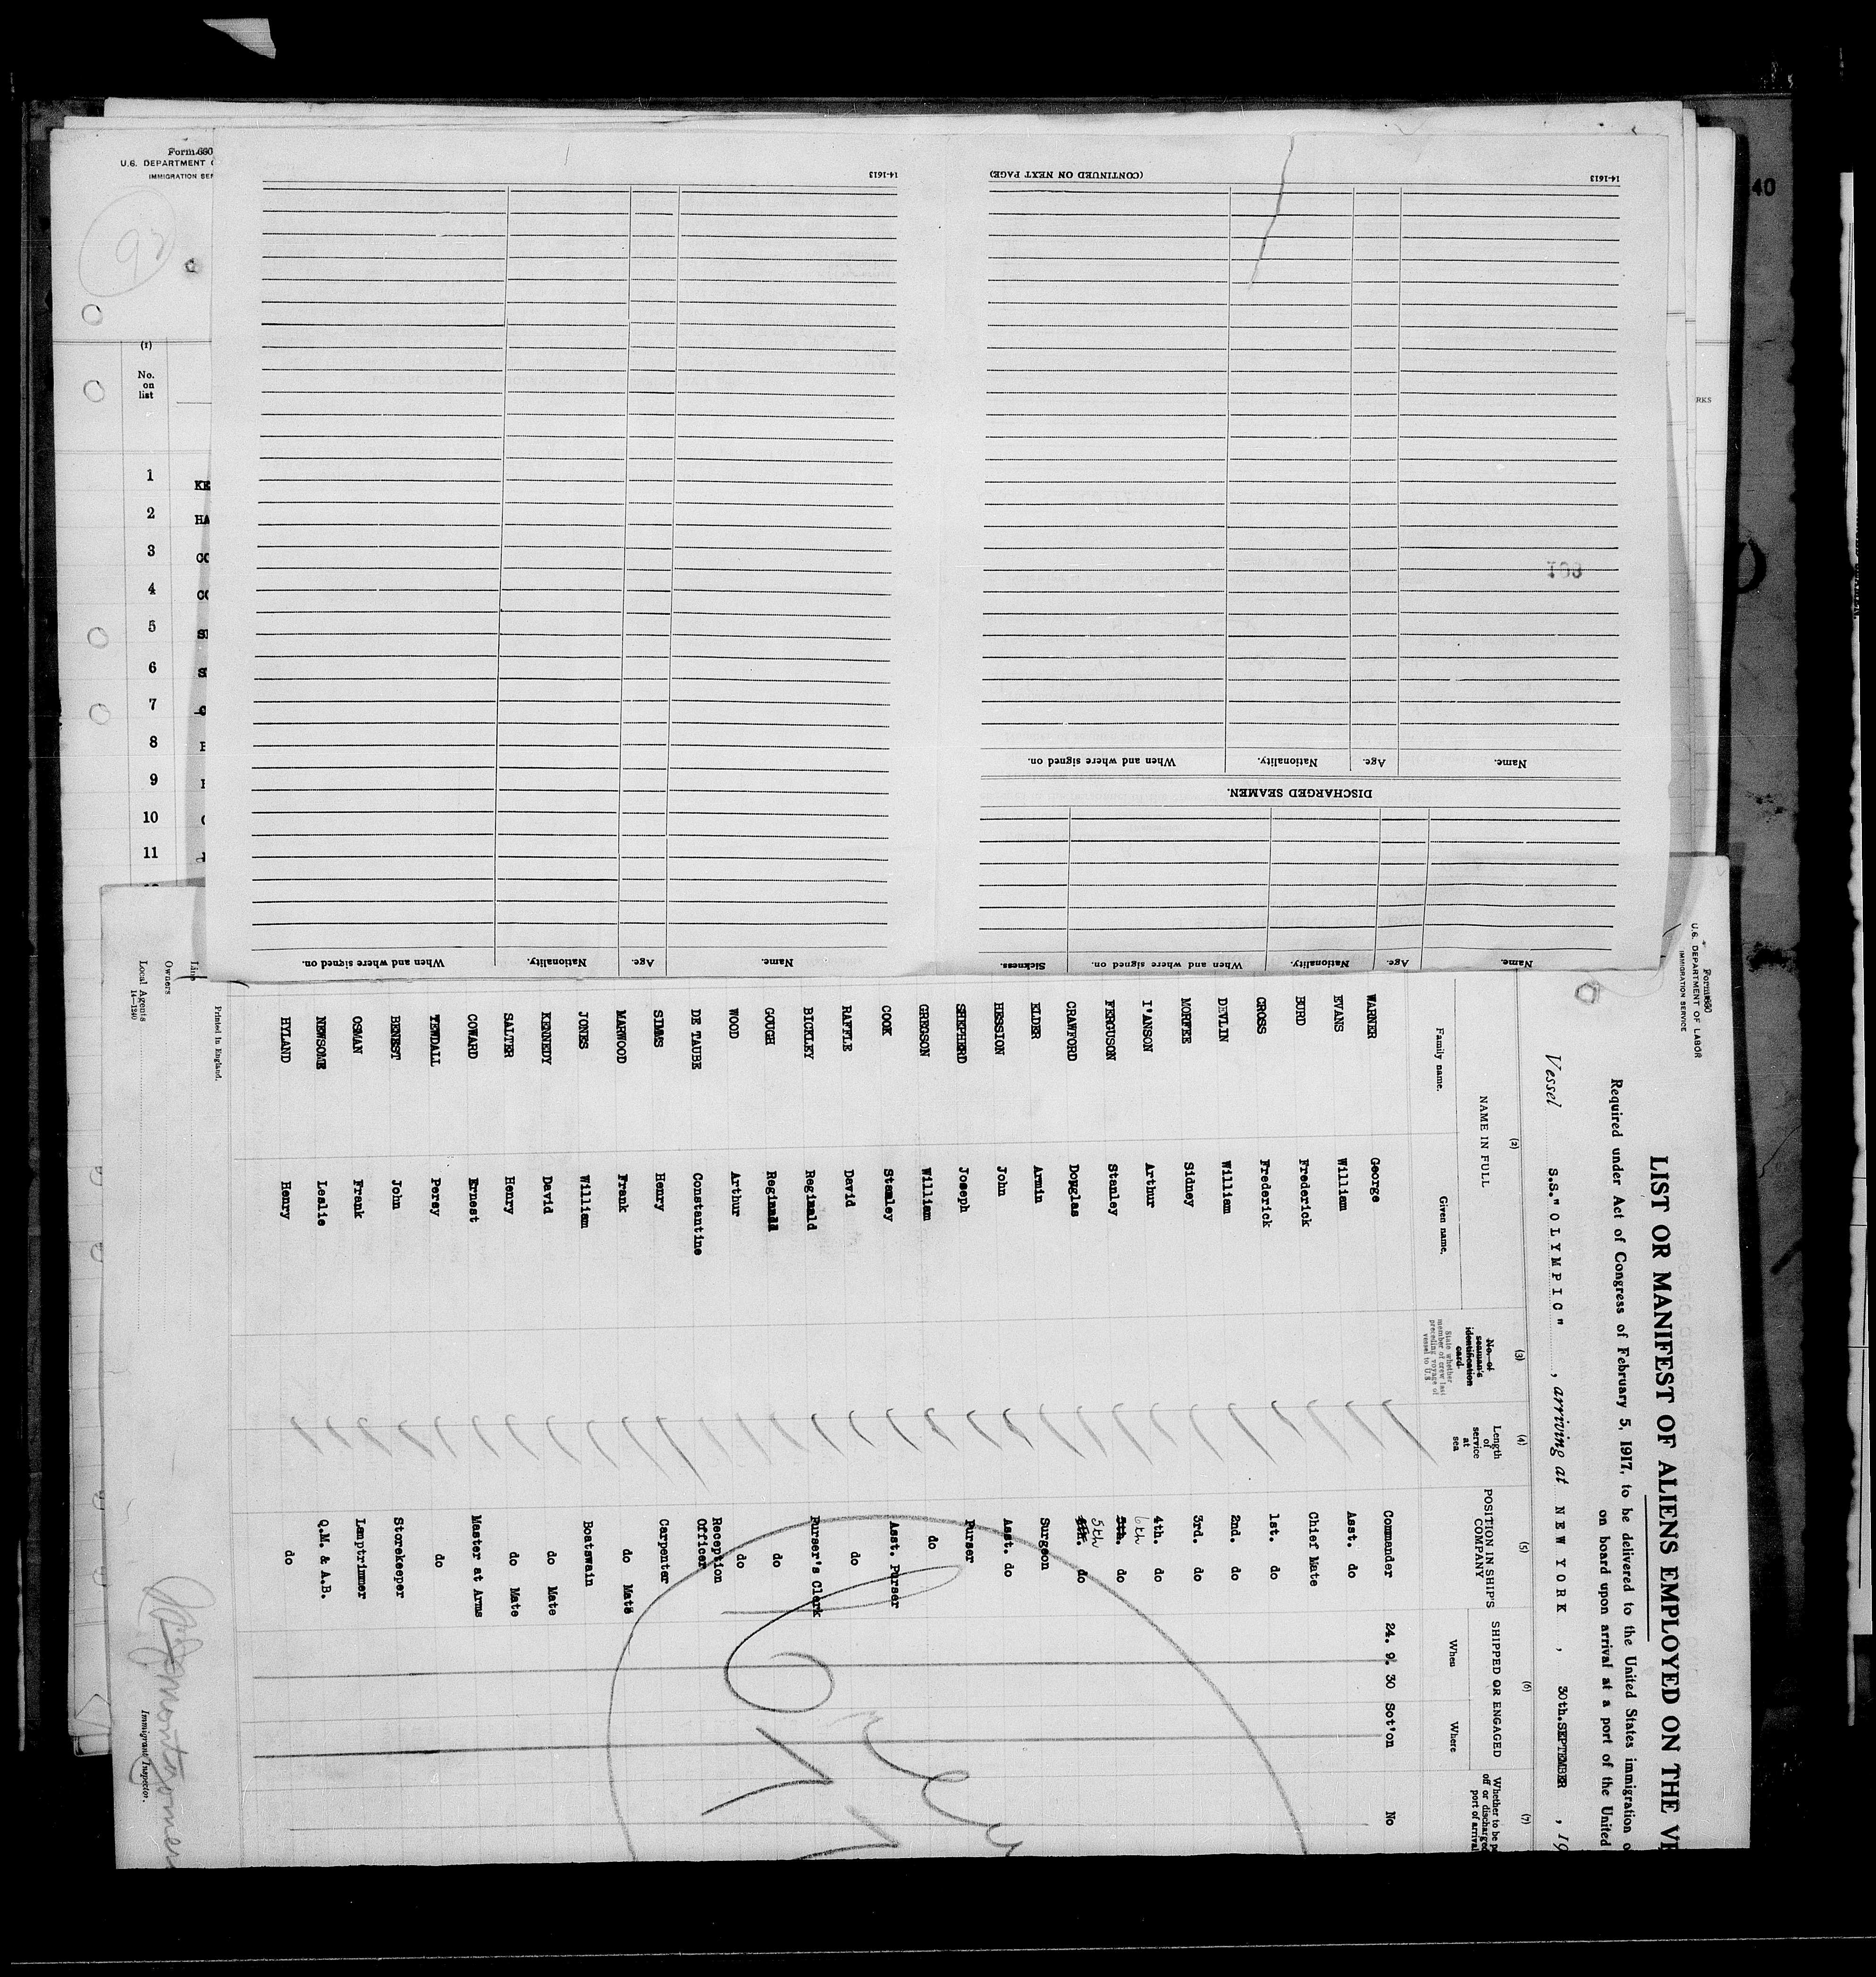 Form 680
U.S. DEPARTMENT
IMMIGRATION SER
92
(1)
No.
on
list
1 KE
2 HA
3 CO
4 CO
5
6
7
8
9
10
11
40
RKS
14-1613
(CONTINUED ON NEXT PAGE)
14-1613
103
Name. Age. Nationality. When and where signed on.
DISCHARGED SEAMEN.
Name. Age. Nationality. When and where signed on. Sickness.
Name. Age. Nationality. When and where signed on.
Form 680
U.S. DEPARTMENT OF LABOR
IMMIGRATION SERVICE
LIST OR MANIFEST OF ALIENS EMPLOYED ON THE VE
Required under Act of Congress of February 5, 1917, to be delivered to the United States immigration o
on board upon arrival at a port of the United
Vessel S.S. "OLYMPIC" , arriving at NEW YORK , 30th.SEPTEMBER , 19
(2) (3) (4) (5) (6) (7)
NAME IN FULL
Family name. Given name.
No. of seaman's identification card
State whether member of crew last preceding voyage of vessel to U.S
Length of service at sea
POSITION IN SHIP'S COMPANY
SHIPPED OR ENGAGED
When Where
Whether to be p
off or discharged
port of arrival
WARNER George Commander 24. 9. 30 Sot'on No
EVANS William Asst. do
BURD Frederick Chief Mate
CROSS Frederick 1st. do
DEVLIN William 2nd. do
MORFEE Sidney 3rd. do
I'ANSON Arthur 4th. do
FERGUSON Stanley 5th. 6th do
CRAWFORD Douglas 6th. 5th do
ELDER Armin Surgeon
HESSION John Asst. do
SHEPHERD Joseph Purser
GREGSON William do
COOK Stanley Asst. Purser
RAFFLE David do
BICKLEY Reginald Purser's Clerk
GOUGH Reginald do
WOOD Arthur do
DE TAUBE Constantine Reception Officer
SIMMS Henry Carpenter
MARWOOD Frank do Mate
JONES William Boatswain
KENNEDY David do Mate
SALTER Henry do Mate
COWARD Ernest Master at Arms
TEWDALL Percy do
BENEST John Storekeeper
OSMAN Frank Lamptrimmer
NEWSOME Leslie Q.M. & A.B.
HYLAND Henry do
Printed in England.
Line
Owners
Local Agents
14-1240
Immigrant Inspector.